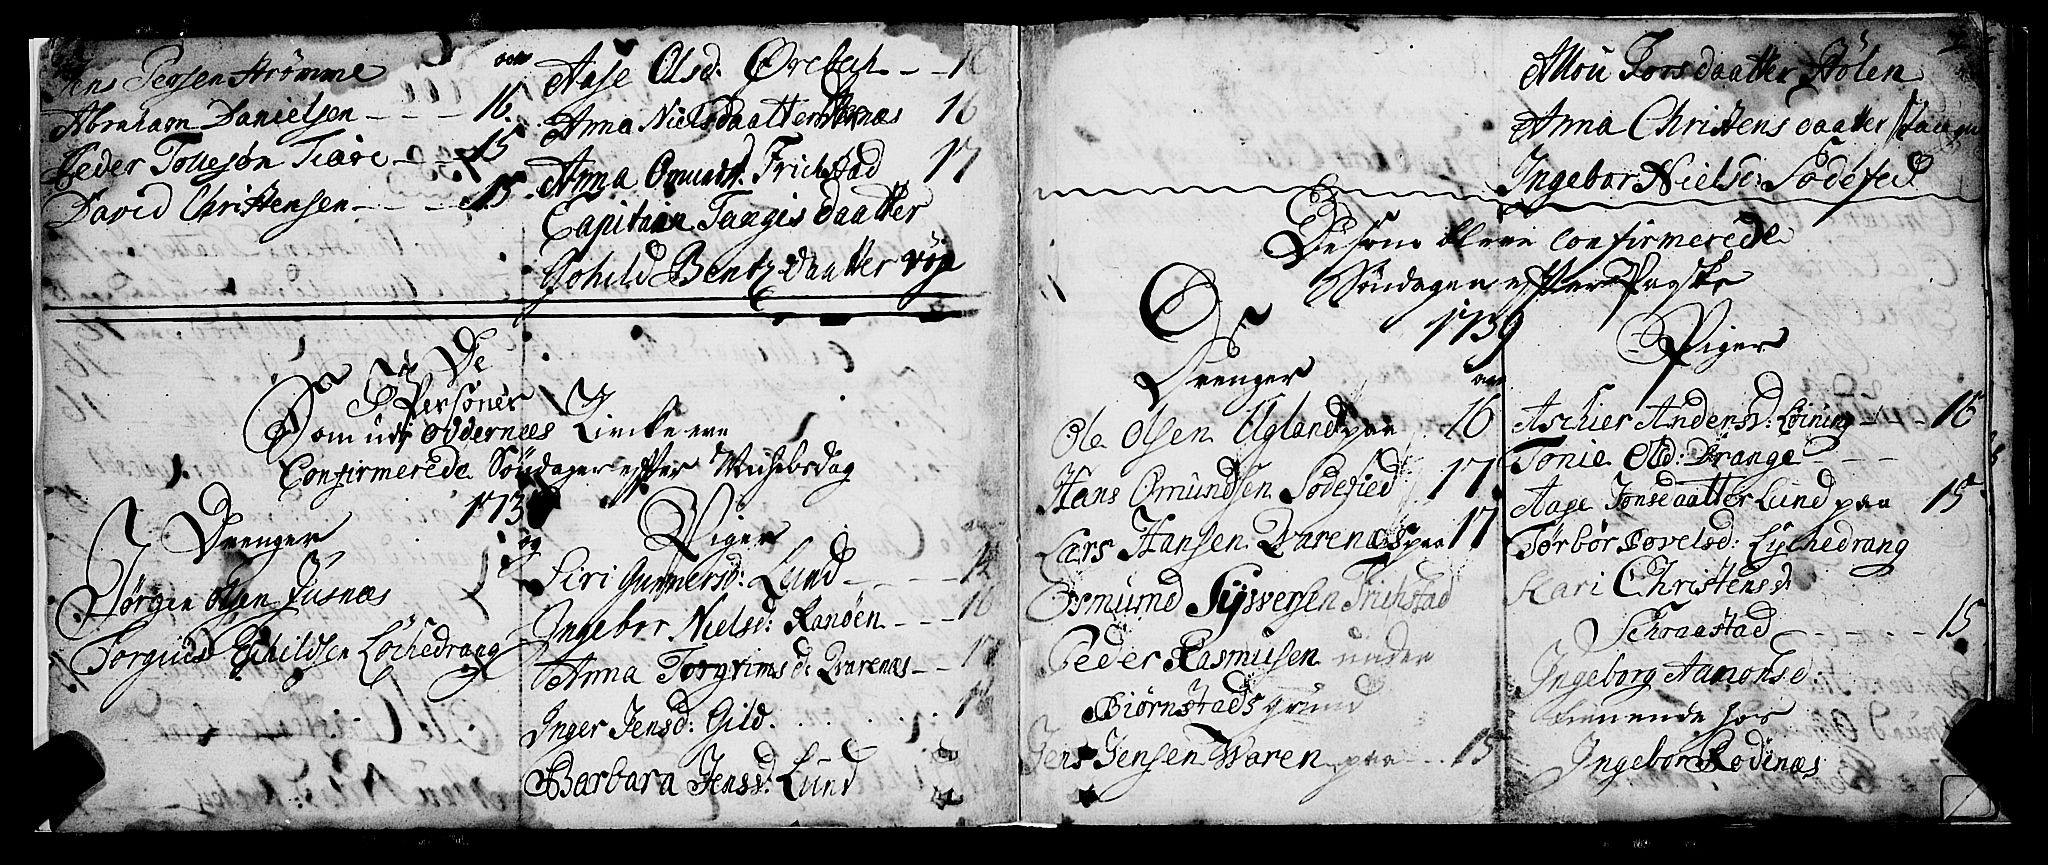 Jens Persen Strømme
Abraham Danielsen - - - 16
Peder Tollesøn Tiøre - - 15
David Christensen - - - 15
aar
Aase Olsd: Ørebech - - 16
Anna Nielsdaatter 16
Anna Omundsd. Frichstad 17
Capitain Taagis daatter
Gohild Bentz daatter
De
Personer
Som udj Oddernees Kircke ere
Confirmerede Søndagen effter Michelsdag
173
Drenger og Piger
Jørgen Olsen Fusnæs
Torgiuls Eschildsen Løchedrang
Siri Gunnersd: Lund - - - 14
Ingebor Nielsd: Randen - - - 16
Anna Torgrimsd: Qvarenæs - - 17
Inger Jensd: Gild
Barbara Jensd: Lund
Allou Torsdaatter Stølen
Anna Christensdaatter
Ingebor Nielsd: Sødefed
De som bleve Confirmerede
Søndagen effter Paaske
1739
Drenger
aar
Ole Olsen Ugland paa 16
Hans Omundsen Sødefied 17
Lars Hansen Qvarenæs paa 17
Osmund Syversen Frichstad
Peder Rasmusen under
Biørnstads grund
Jens Jensen Waren paa - - 15
Piger
Aschier Andersd: Løining - - - 16
Tonie Old: Drange - - -
Aase Jonsdaatter Lund paa 15
Tørbør Povelsd: Lychedrang
Kari Christensd
Schraastad - - - - 15
Ingeborg Aamonsd:
tienende hos
Ingebor Rodenæs